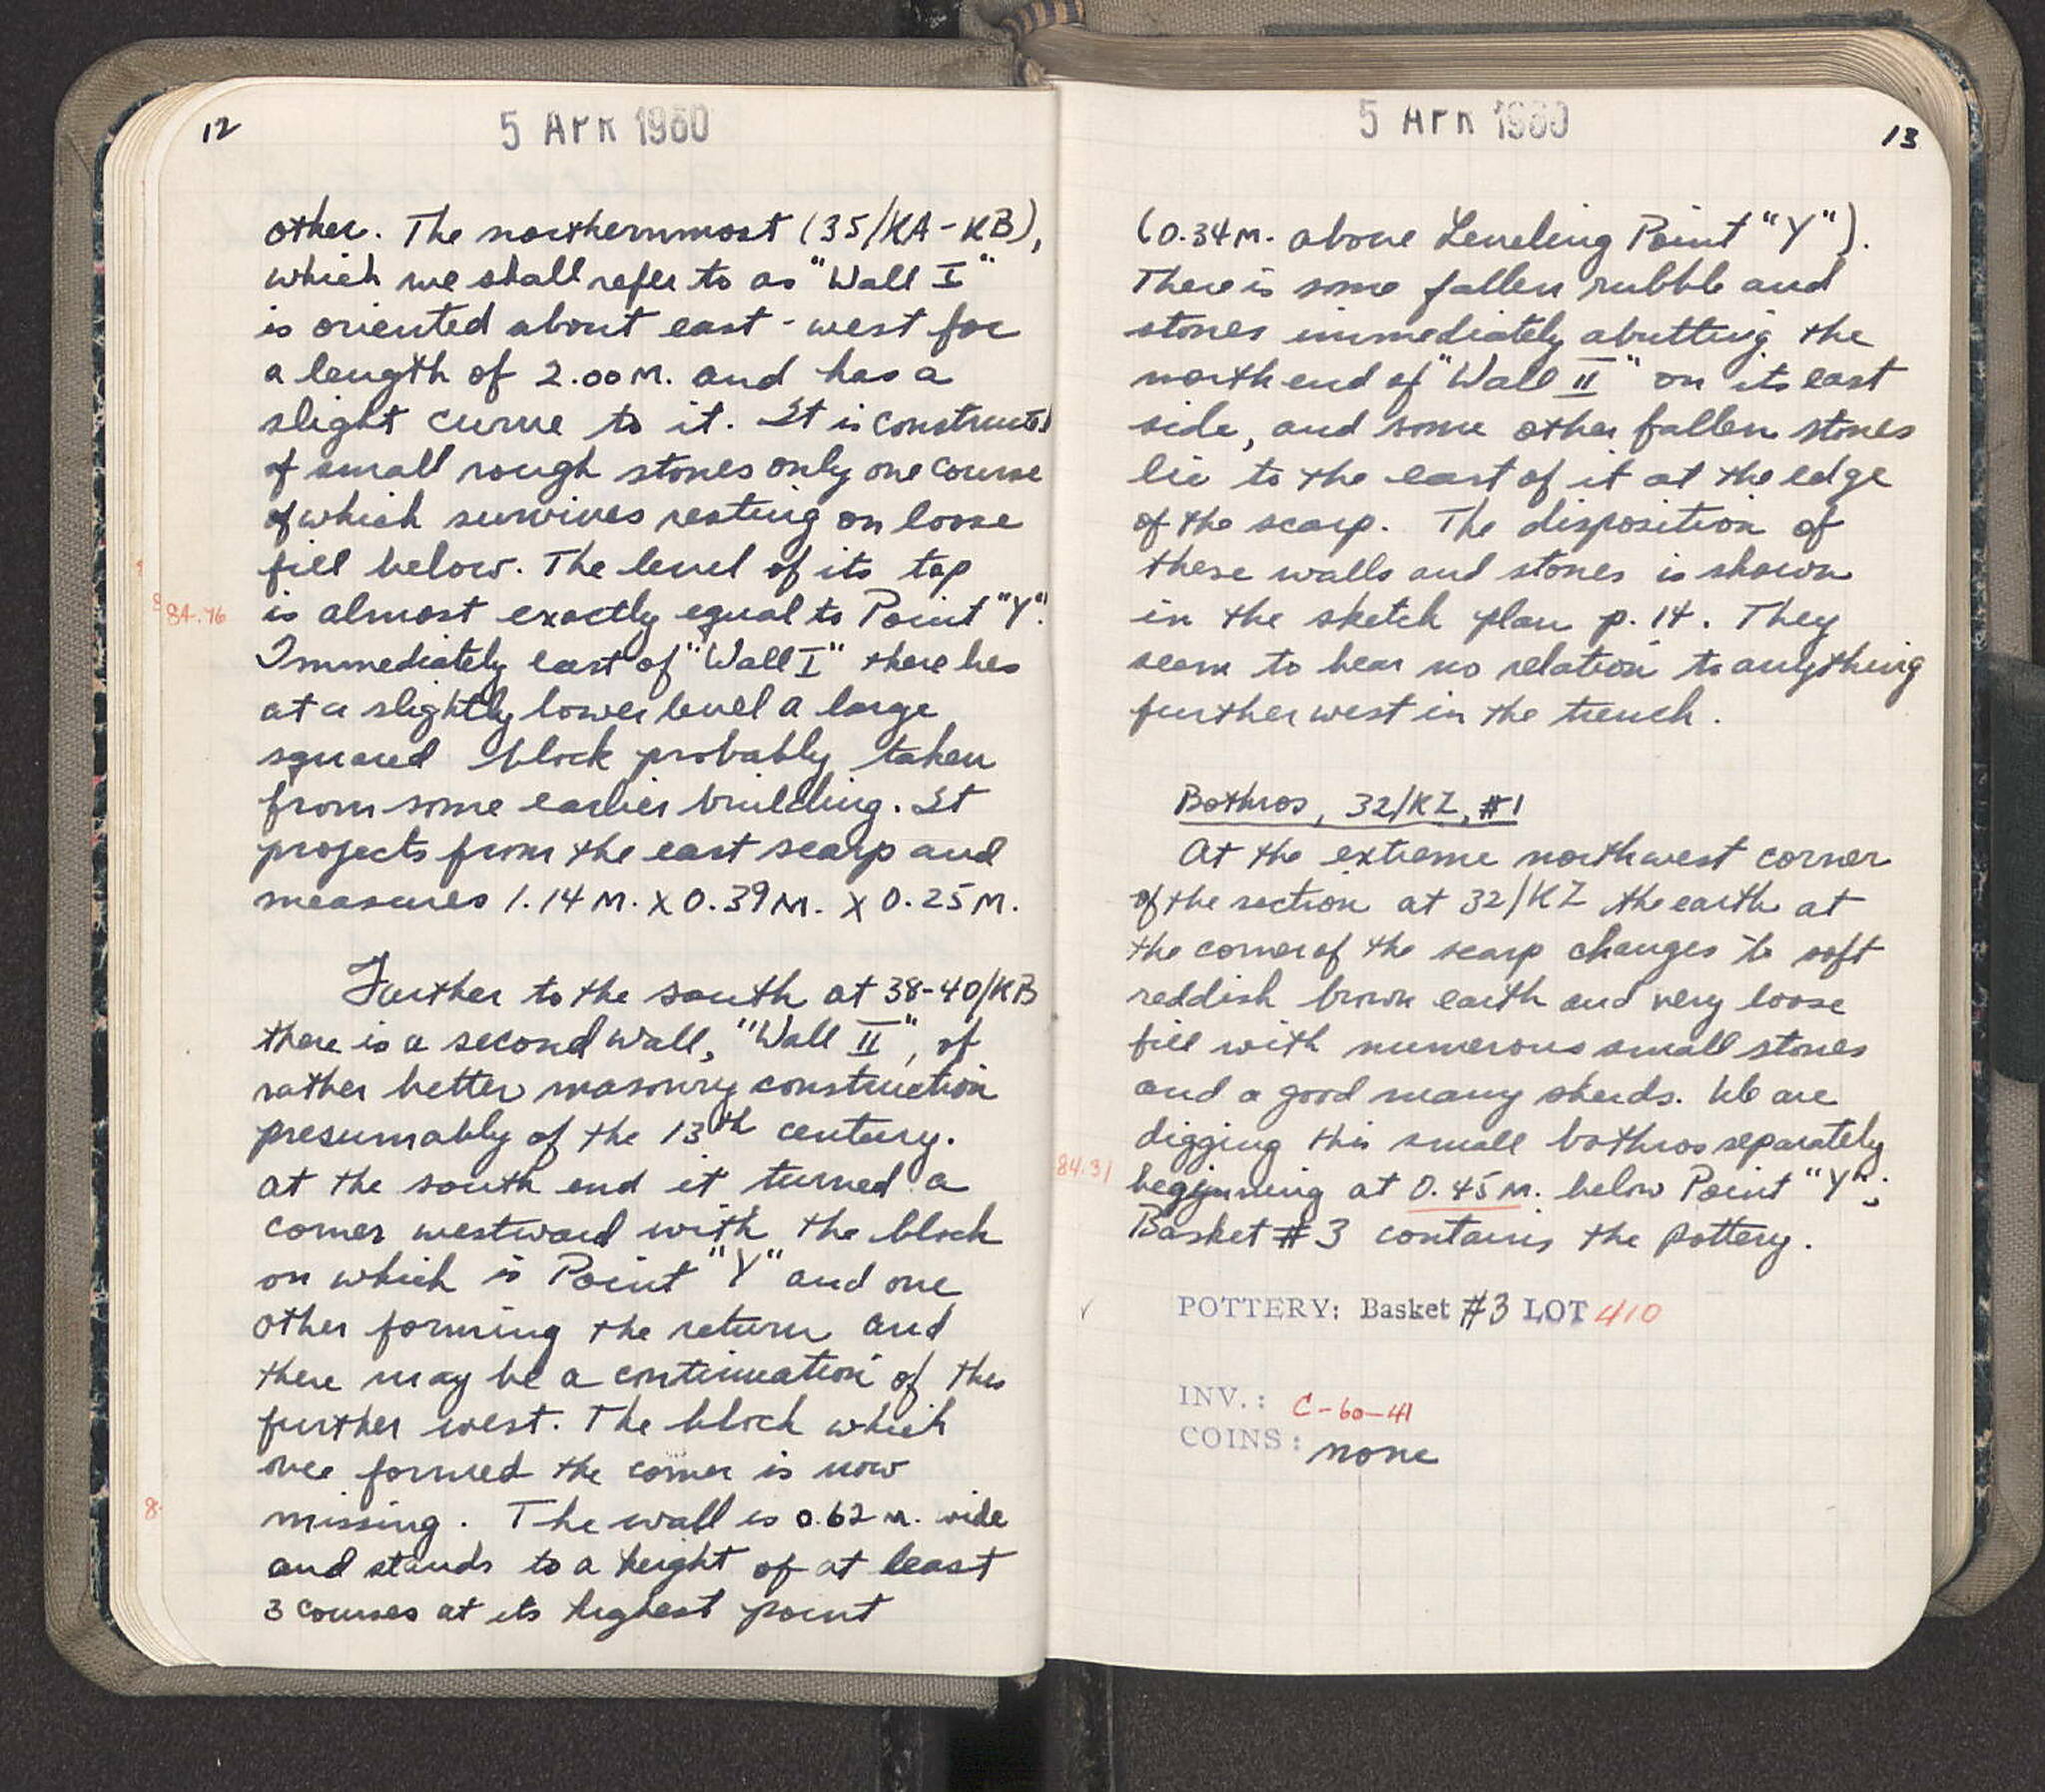 12
5 APR 1960
other. The northernmost (35/KA-KB),
which we shall refer to as "Wall I"
is oriented about east-west for
a length of 2.00 M. and has a
slight curve to it. It is constructed
of small rough stones only one course
of which survives resting on loose
fill below. The level of its top
84.76 is almost exactly equal to Point "Y".
Immediately east of "Wall I" there lies
at a slightly lower level a large
squared block probably taken
from some earlier building. It
projects from the east scarp and
measures 1.14 M. X 0.39 M. X 0.25 M.
Further to the south at 38-40/KB
there is a second wall, "Wall II", of
rather better masonry construction
presumably of the 13th century.
At the south end it turned a
corner westward with the block
on which is Point "Y" and one
other forming the return and
there may be a continuation of this
further west. The block which
once formed the corner is now
8 missing. The wall is 0.62 M. wide
and stands to a height of at least
3 courses at its highest point
5 APR 1960
13
(0.34 M. above Leveling Point "Y").
There is some fallen rubble and
stones immediately abutting the
north end of "Wall II" on its east
side, and some other fallen stones
lie to the east of it at the edge
of the scarp. The disposition of
these walls and stones is shown
in the sketch plan p. 14. They
seem to bear no relation to anything
further west in the trench.
Bothros, 32/KZ, #1
At the extreme northwest corner
of the section at 32/KZ the earth at
the corner of the scarp changes to soft
reddish brown earth and very loose
fill with numerous small stones
and a good many sherds. We are
digging this small bothros separately
84.31 beginning at 0.45 M. below Point "Y";
Basket #3 contains the pottery.
✓ POTTERY: Basket #3 LOT 410
INV.: C-60-41
COINS: none